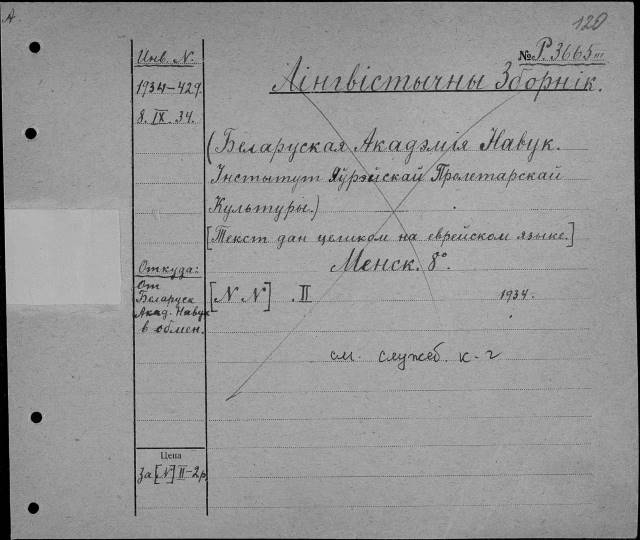 А
120
№ Р.3665 III
Инв. N.
1934-429.
8.IX.34.
Лінгвістычны Зборнік.
(Беларуская Акадэмія Навук.
Інстытут Яўрэйскай Пролетарскай
Культуры.)
[Текст дан целиком на еврейском языке.]
Менск. 8°.
Откуда:
От
Беларуск
Акад. Навук
в обмен.
[N N] . II 1934.
см. служеб. к-г
Цена
За [N] II-2р.